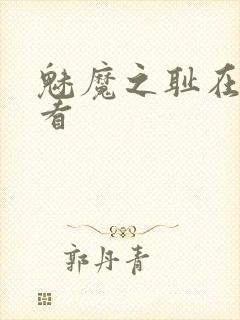 魅魔之耻在
者
郭丹青